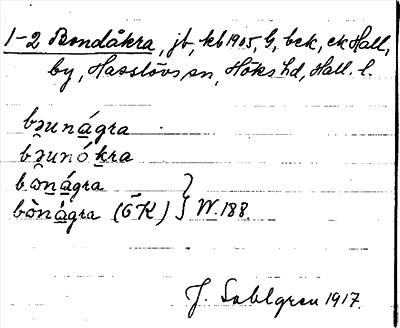 1-2 Bondåkra, jb, kb 1905, G, bck, ek Hall,
by, Hasslövs sn, Höks hd, Hall. l.
bɜunágra
bɜunókra
bònágra
bònágra (ÖK) } W. 188.
J. Sahlgren 1917.